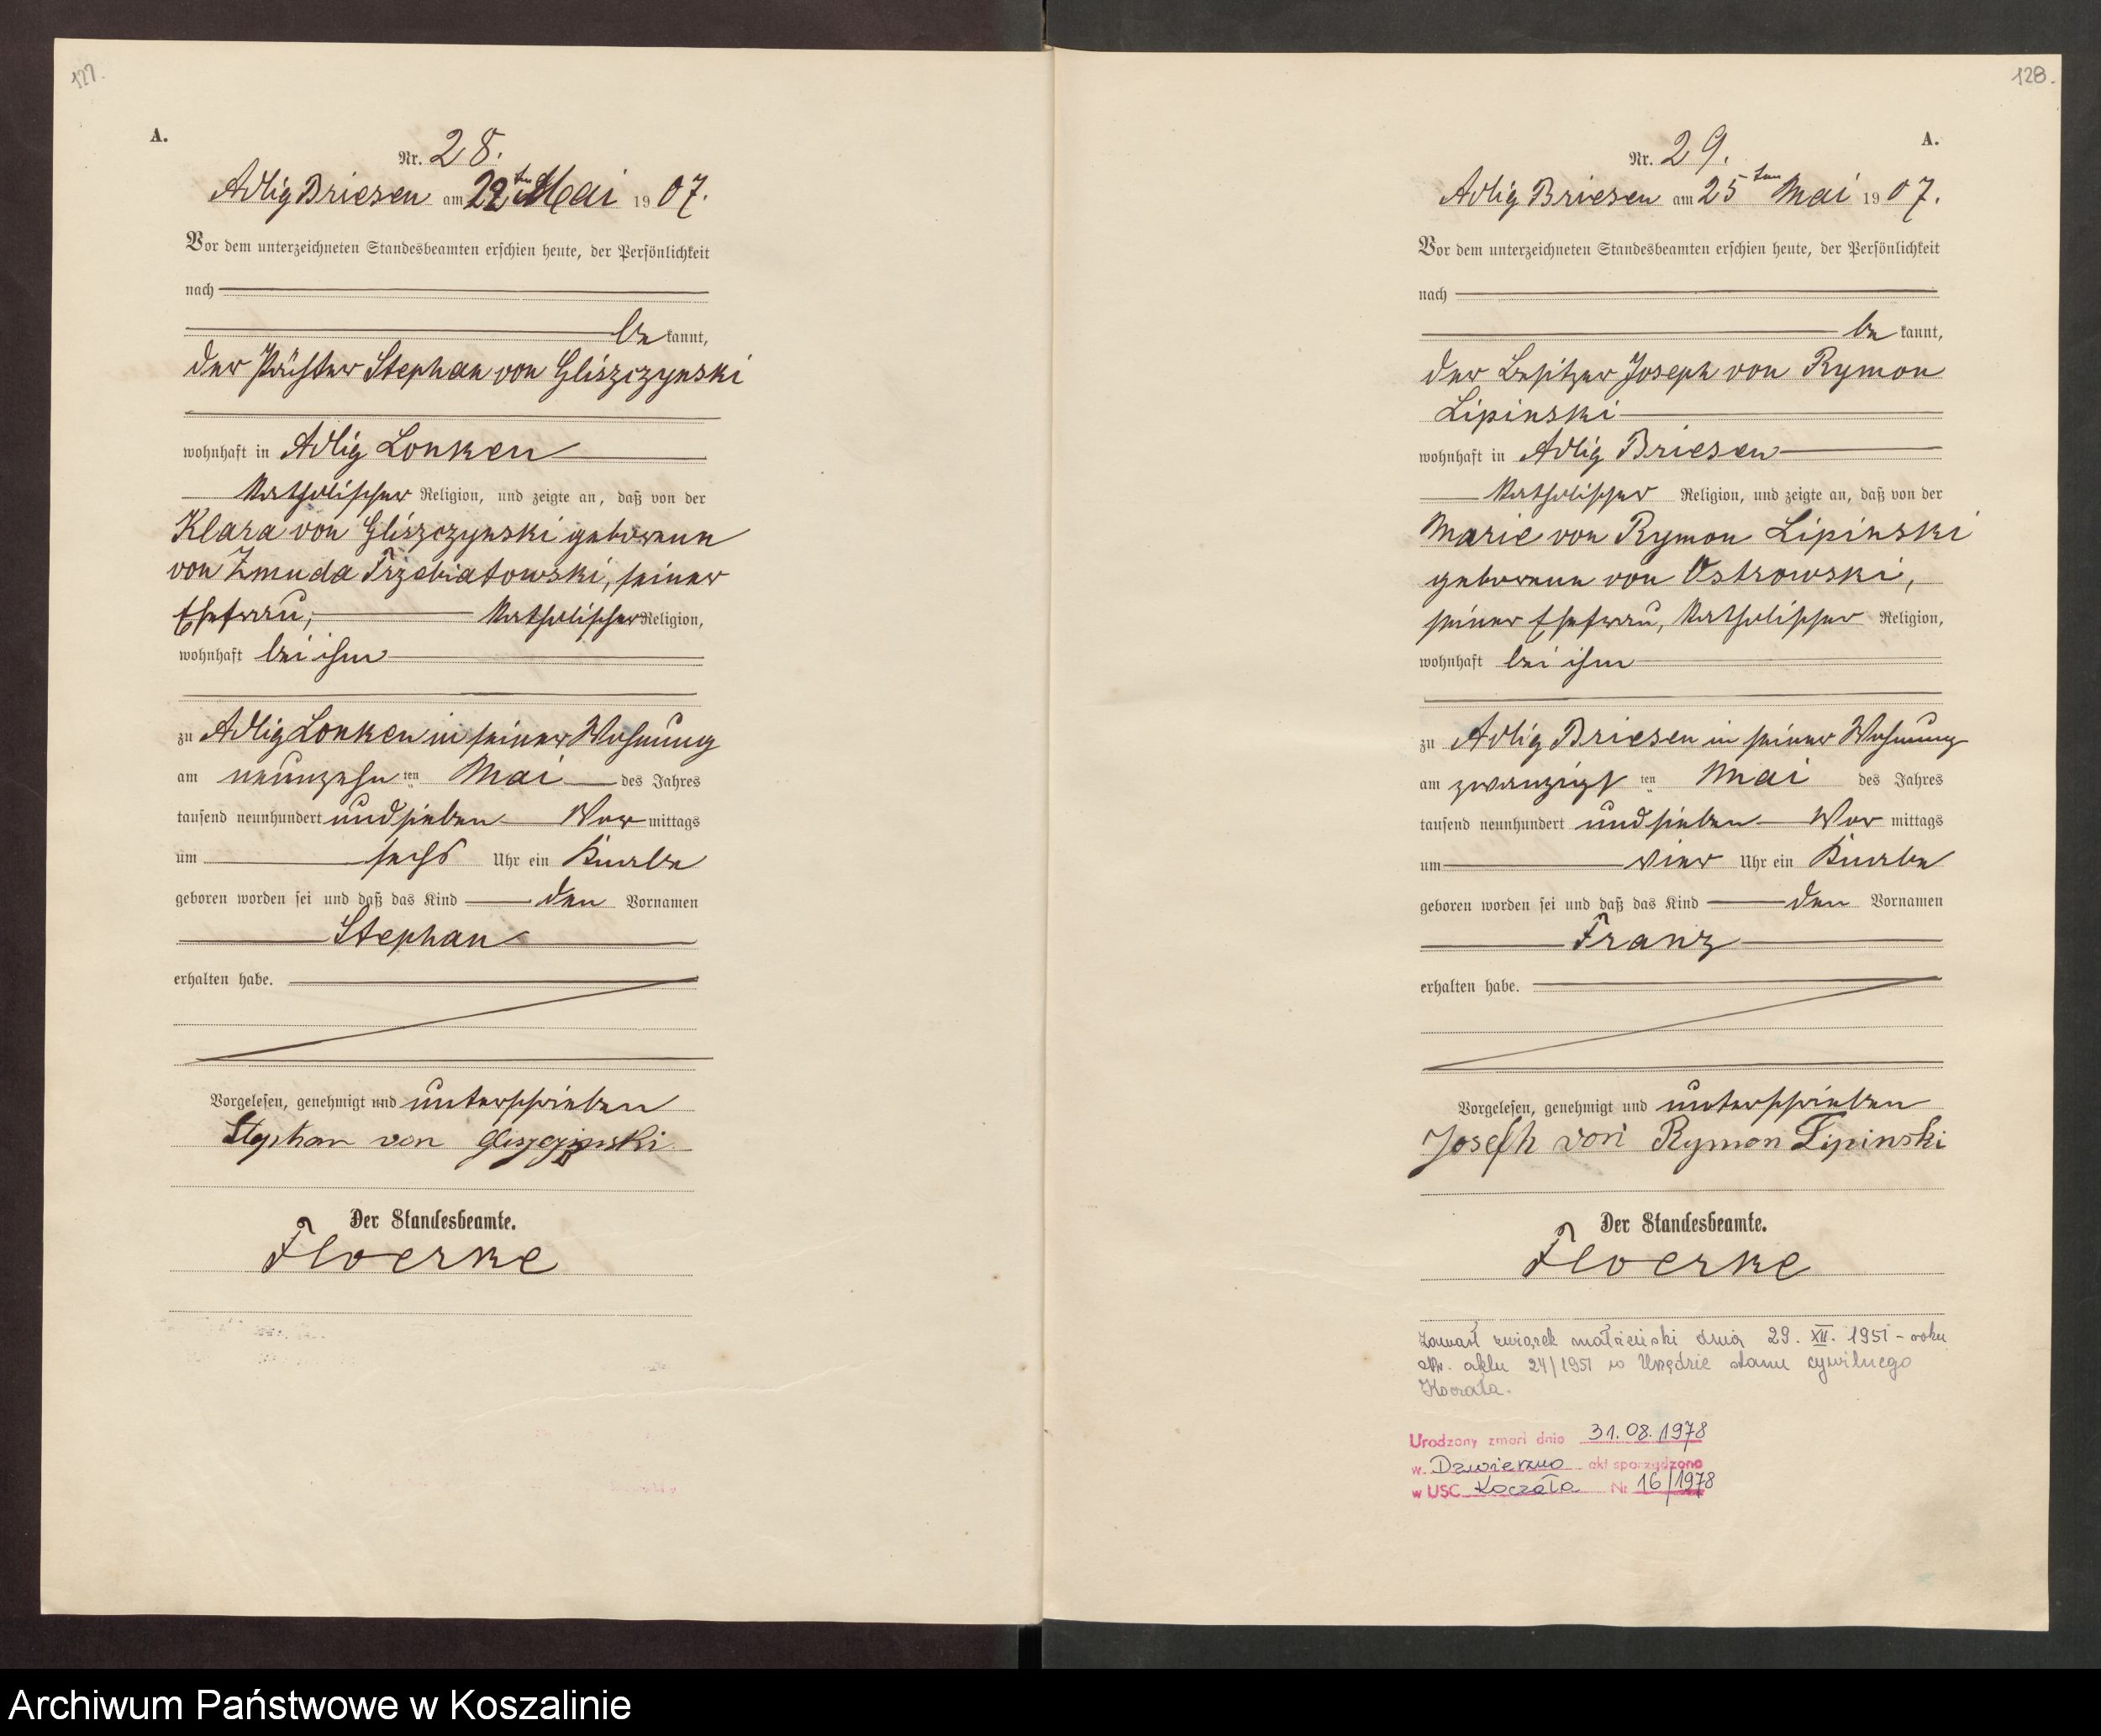 127.
A.
Nr. 28.
Adlig Briesen am 22ten Mai 1907.
Vor dem unterzeichneten Standesbeamten erschien heute, der Persönlichkeit
nach
be kannt,
der Pächter Stephan von Gliszczynski
wohnhaft in Adlig Lonken
katholischer Religion, und zeigte an, daß von der
Klara von Gliszczynski geborenen
von Zmuda Trzebiatowski, seiner
Ehefrau, katholischer Religion,
wohnhaft bei ihm
zu Adlig Lonken in seiner Wohnung
am neunzehn ten Mai des Jahres
tausend neunhundert und sieben Vor mittags
um sechs Uhr ein Knabe
geboren worden sei und daß das Kind den Vornamen
Stephan
erhalten habe.
Vorgelesen, genehmigt und unterschrieben
Stephan von Gliszczynski
Der Standesbeamte.
Floerke
128.
A.
Nr. 29.
Adlig Briesen am 25ten Mai 1907.
Vor dem unterzeichneten Standesbeamten erschien heute, der Persönlichkeit
nach
be kannt,
der Besitzer Joseph von Rymon
Lipinski
wohnhaft in Adlig Briesen
katholischer Religion, und zeigte an, daß von der
Marie von Rymon Lipinski
geborenen von Ostrowski,
seiner Ehefrau, katholischer Religion,
wohnhaft bei ihm
zu Adlig Briesen in seiner Wohnung
am zwanzigs ten Mai des Jahres
tausend neunhundert und sieben Vor mittags
um vier Uhr ein Knabe
geboren worden sei und daß das Kind den Vornamen
Franz
erhalten habe.
Vorgelesen, genehmigt und unterschrieben
Joseph von Rymon Lipinski
Der Standesbeamte.
Floerke
Zawarł związek małżeński dnia 29. XII. 1951 - roku
nr. aktu 24/1951 w Urzędzie stanu cywilnego
Koczała.
Urodzony zmarł dnia 31.08.1978
w Dzwierzno akt sporządzono
w USC Koczała Nr 16/1978
Archiwum Państwowe w Koszalinie